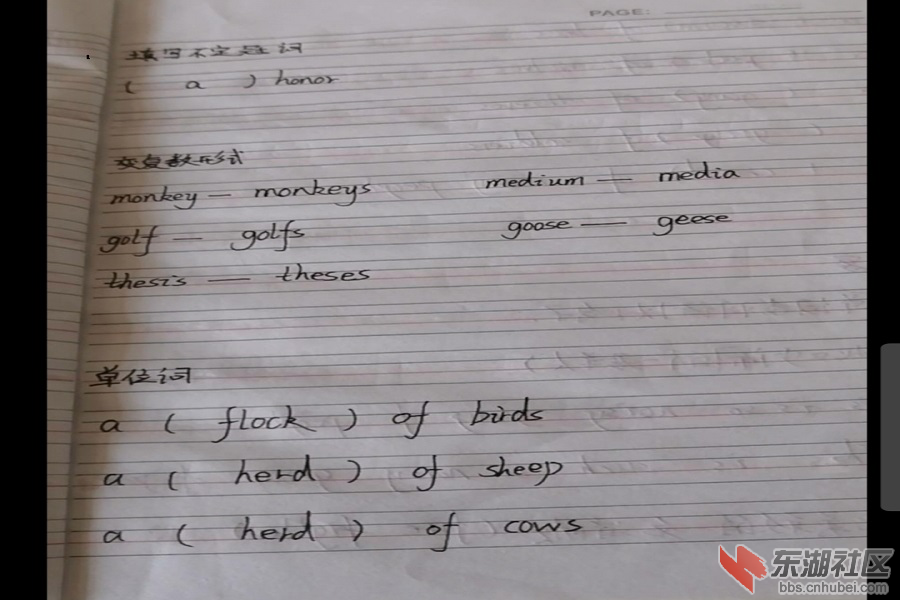 PAGE:
填写不定量词
( a ) honor
变复数形式
monkey — monkeys medium — media
golf — golfs goose — geese
thesis — theses
单位词
a ( flock ) of birds
a ( herd ) of sheep
a ( herd ) of cows
东湖社区
bbs.cnhubei.com